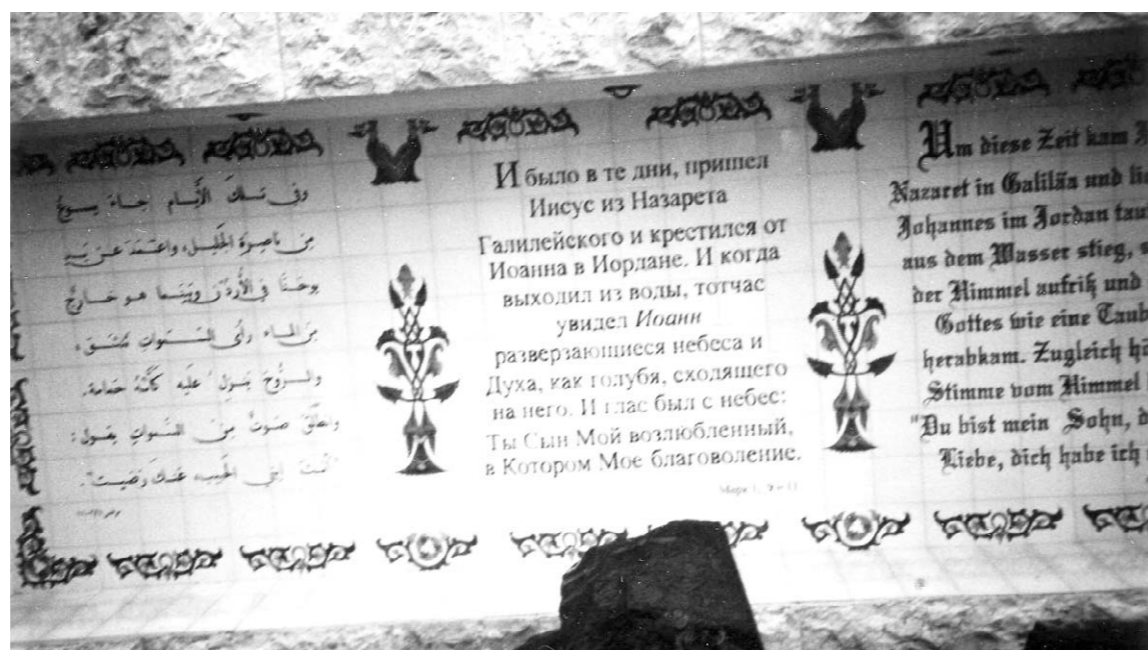 وفي تلك الأيام جاء يسوع
من ناصرة الجليل، واعتمد عن يد
يوحنا في الأردن وبينما هو خارج
من الماء رأى السموات تنشق،
والروح ينزل عليه كأنه حمامة.
وانطلق صوت من السموات يقول:
"أنت ابني الحبيب عنك رضيت".
И было в те дни, пришел
Иисус из Назарета
Галилейского и крестился от
Иоанна в Иордане. И когда
выходил из воды, тотчас
увидел Иоанн
разверзающиеся небеса и
Духа, как голубя, сходящего
на него. И глас был с небес:
Ты Сын Мой возлюбленный,
в Котором Мое благоволение.
Марк 1, 9 - 11
Um diese Zeit kam
Nazaret in Galiläa und
Johannes im Jordan
aus dem Wasser stieg,
der Himmel aufriß und
Gottes wie eine
herabkam. Zugleich
Stimme vom Himmel
"Du bist mein Sohn,
Liebe, dich habe ich